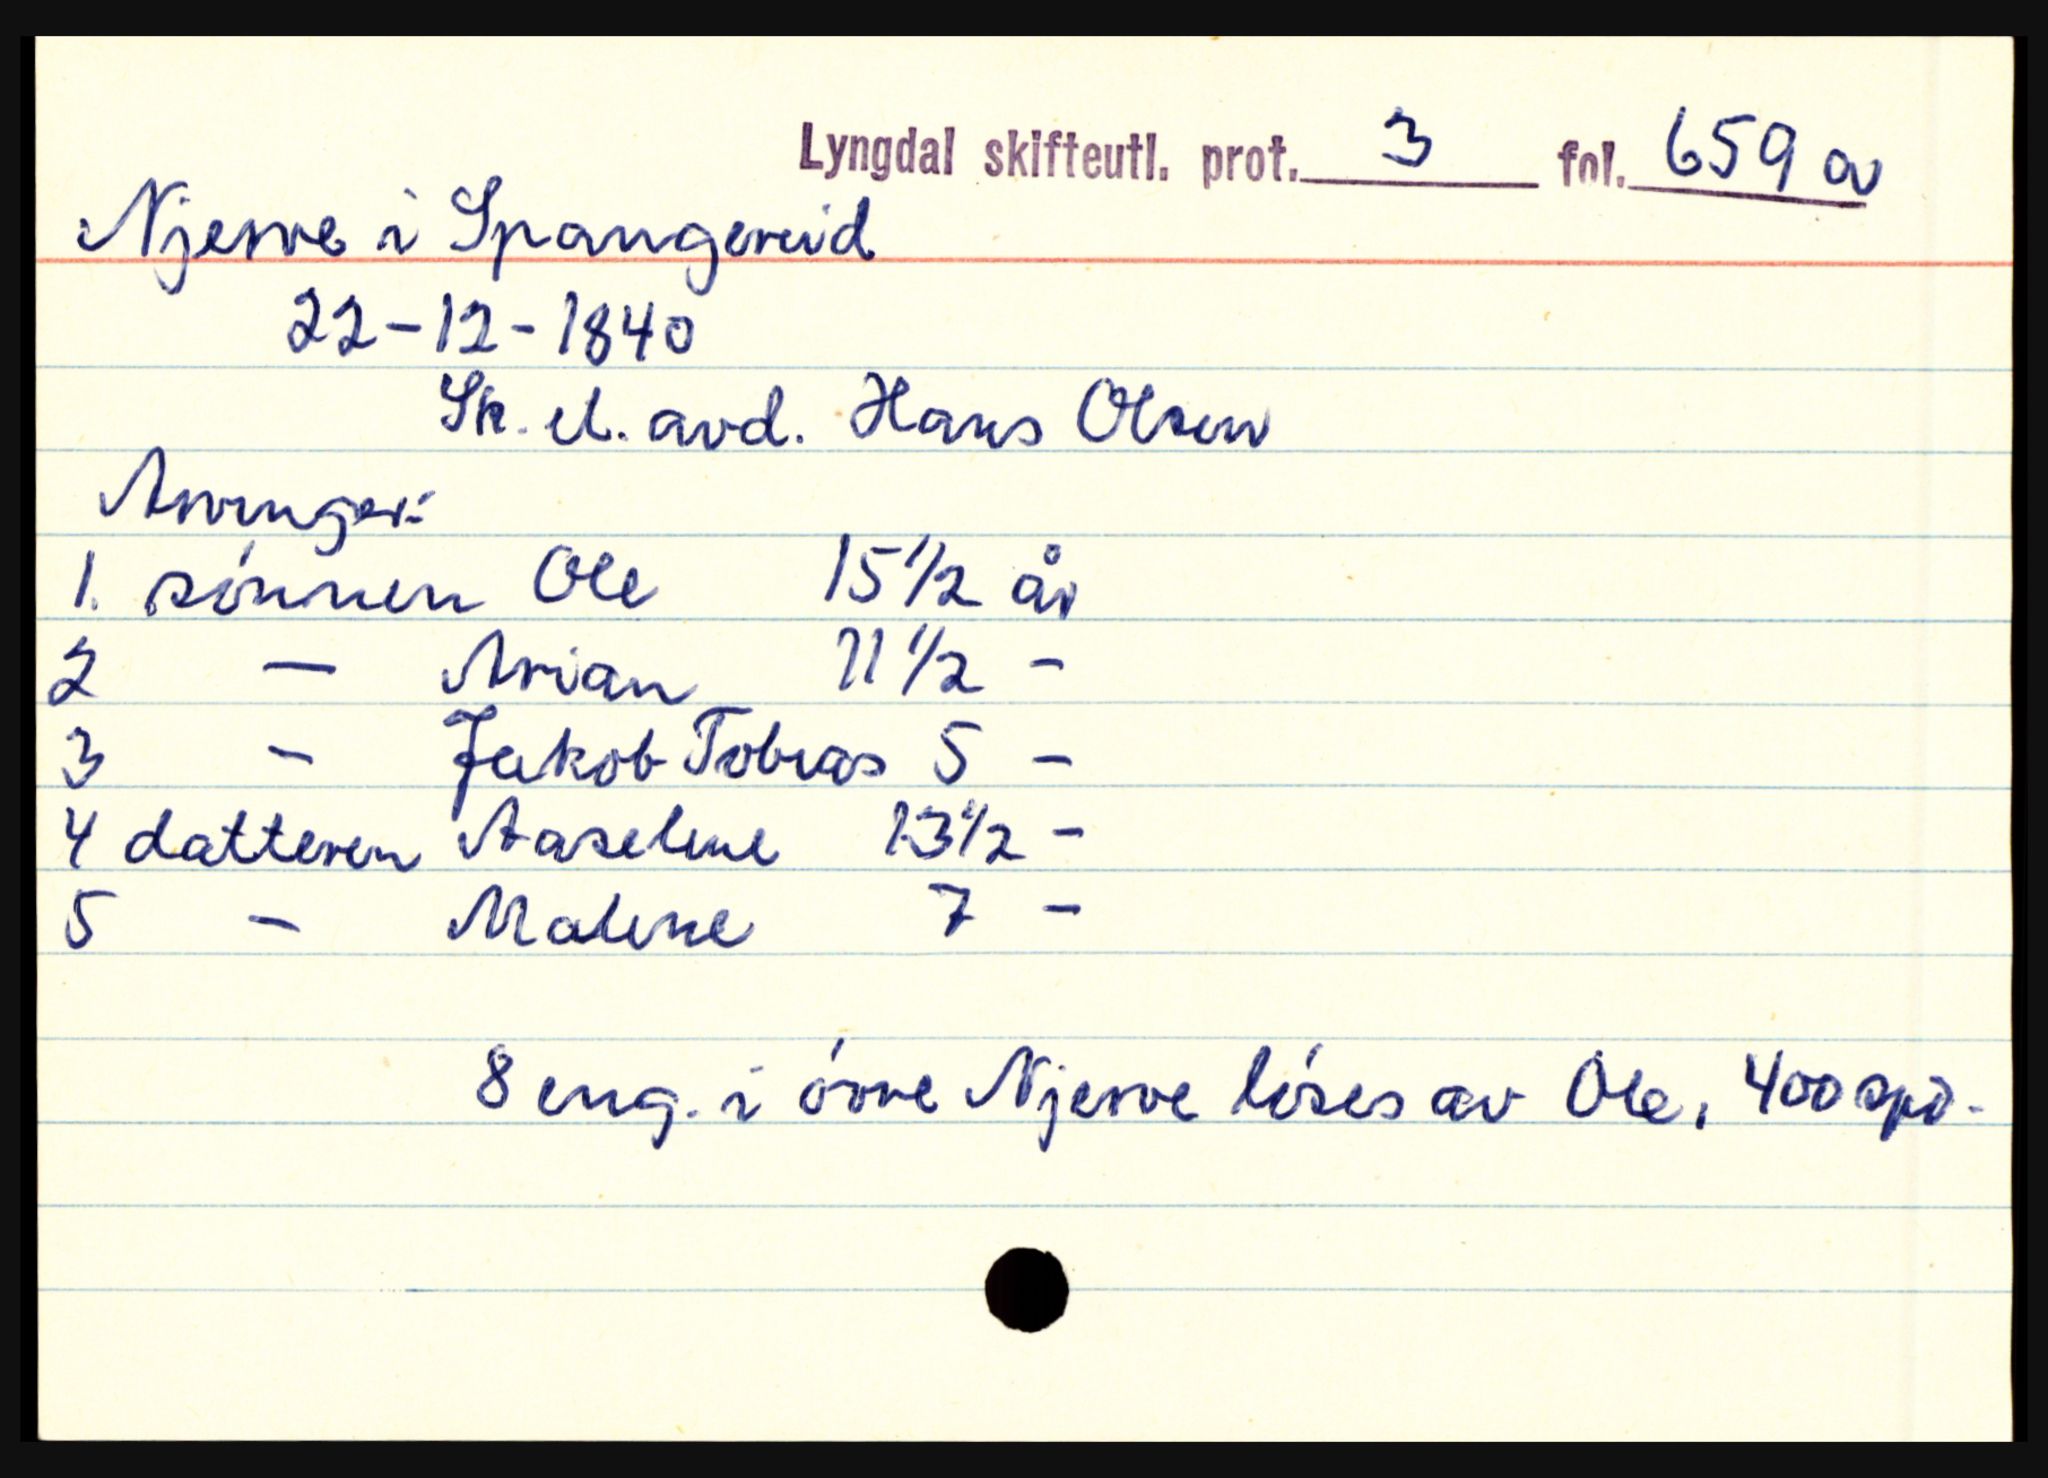 Lyngdal skifteutl. prot. 3 fol. 659 a
Njerve i Spangereid
22-12-1840
Sk. el. avd. Hans Olsen
Arvinger:
1. sónnen Ole 15 1/2 år
2 — Arian 11 1/2 -
3 - Jakob Tobias 5 -
4 datteren Aaselene 13 1/2 -
5 - Malene 7 -
8 eng. i óvre Njerve lóses av Ole, 400 spd.